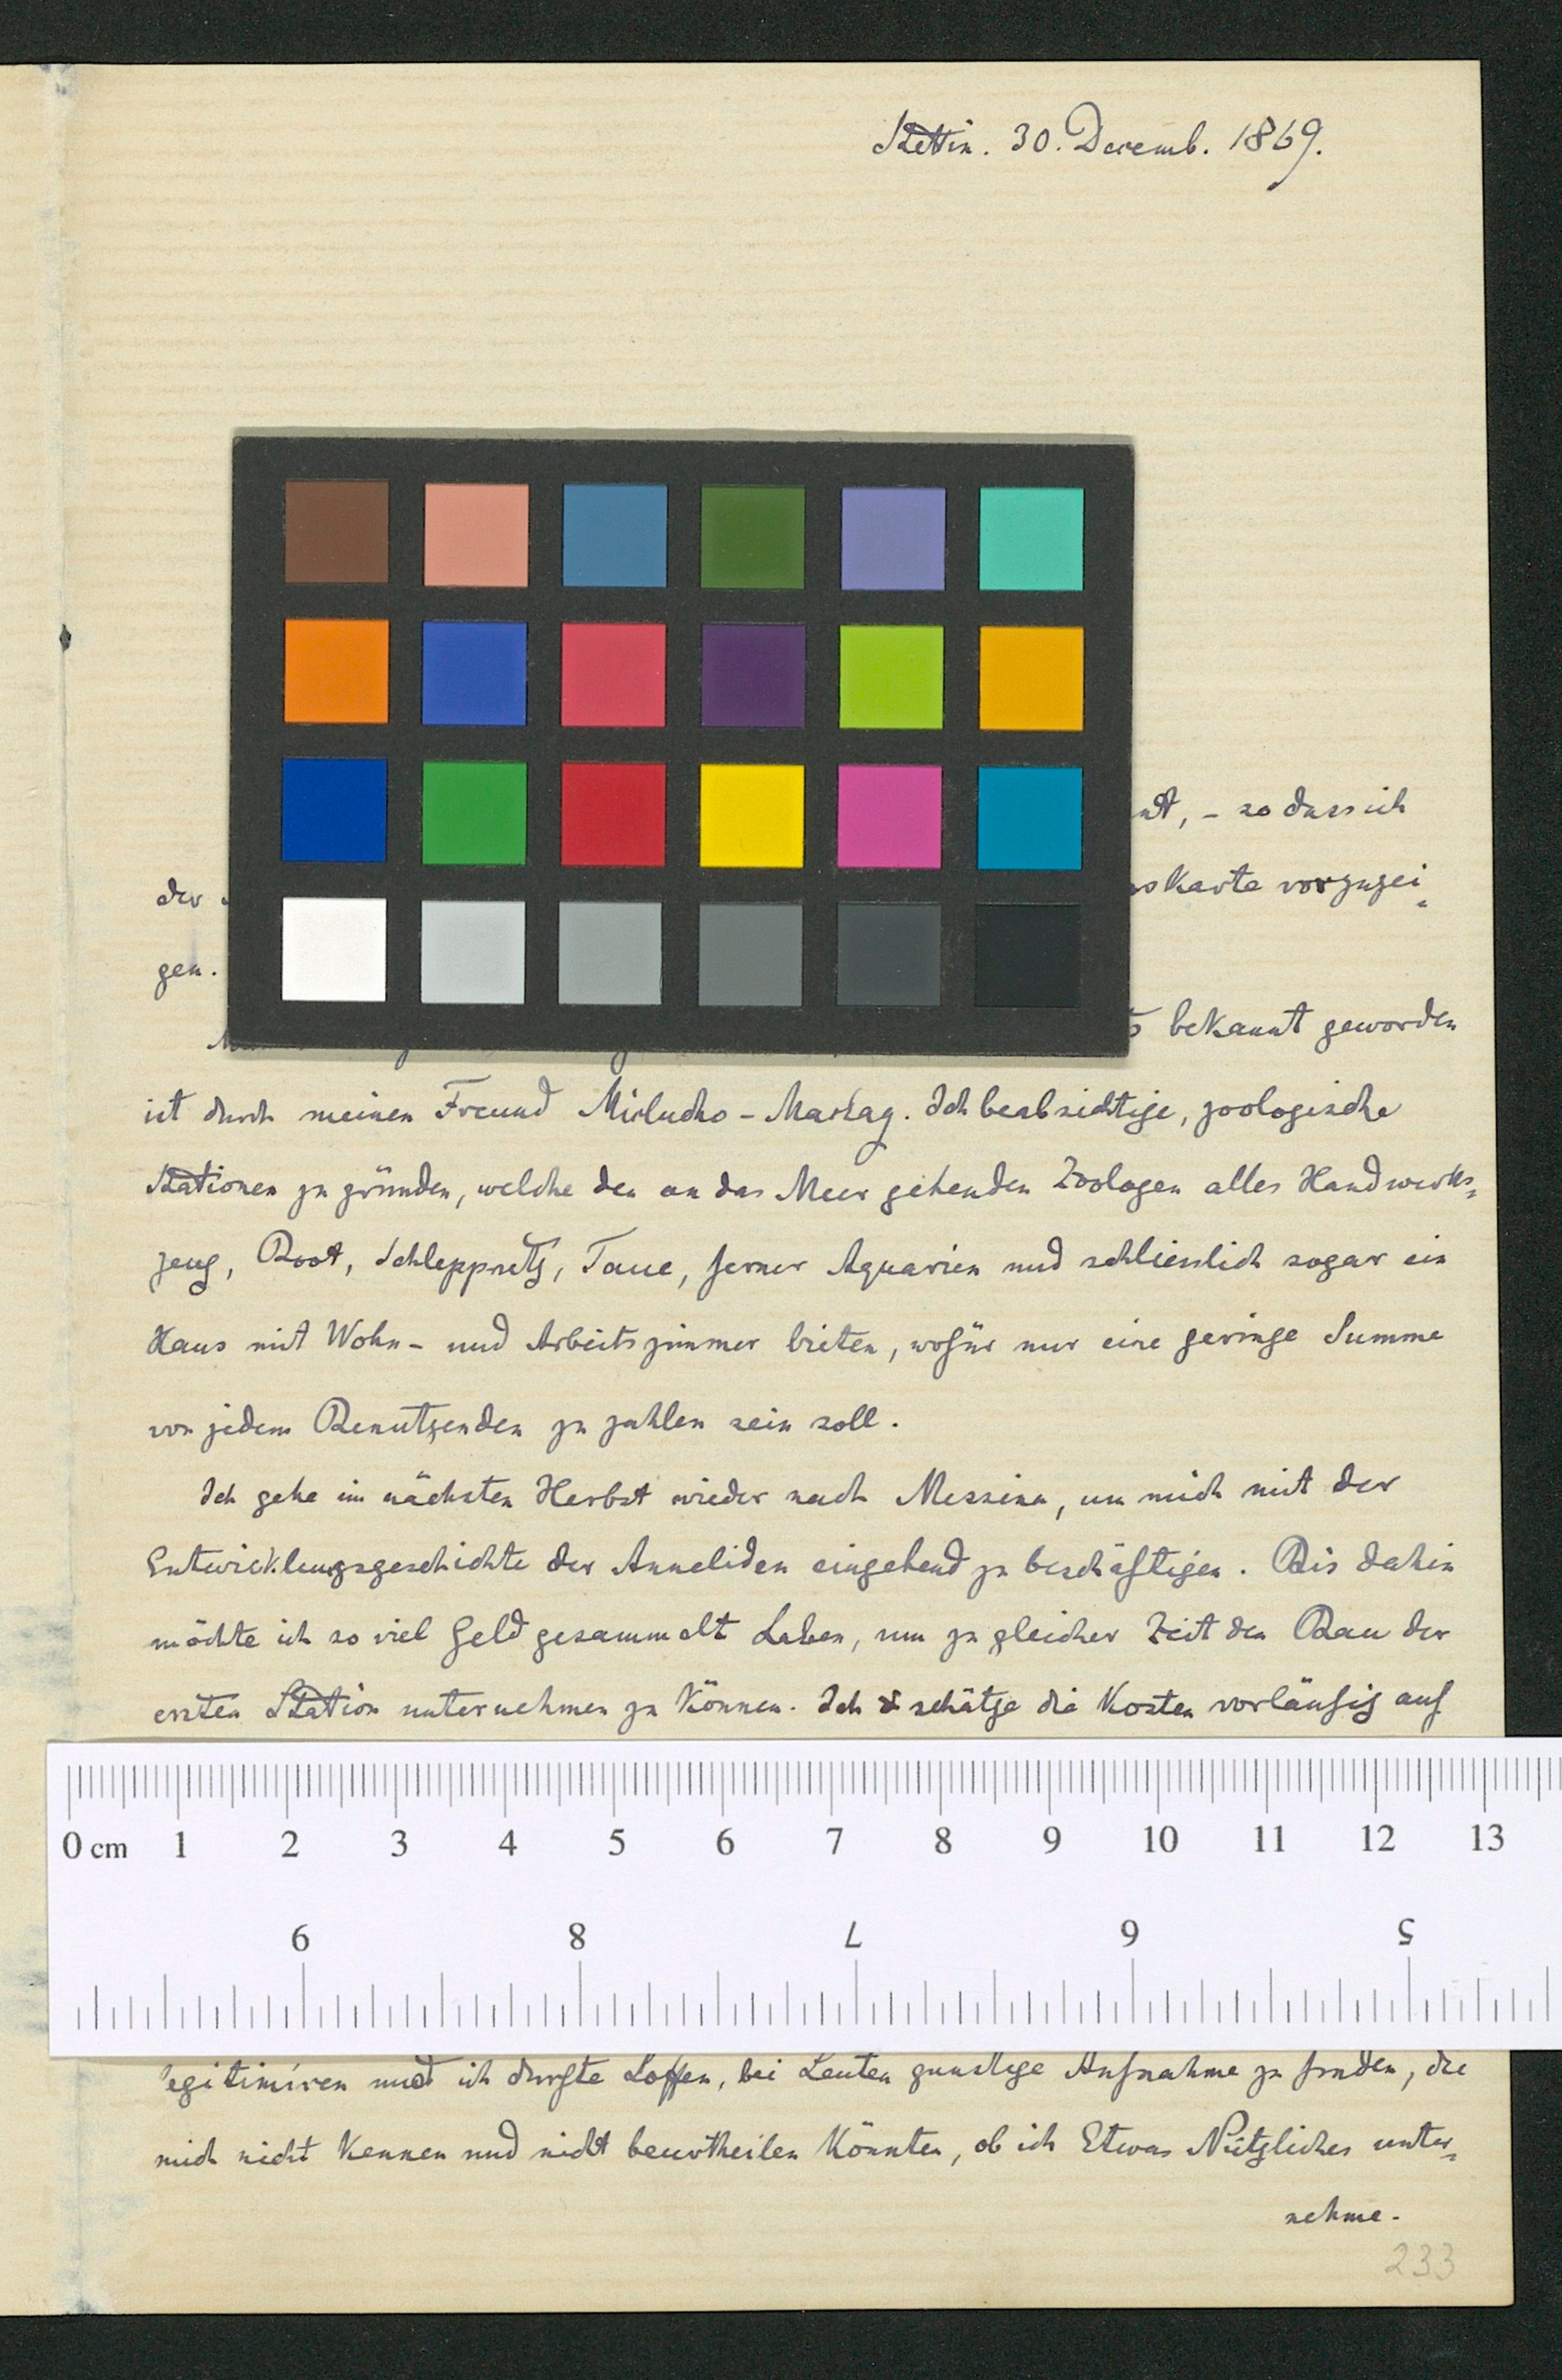 Stettin. 30. Decemb. 1869.
, – so dass ich
der
skarte vorzuzei-
gen.
bekannt geworden
ist durch meinen Freund Miclucho-Maclay. Ich beabsichtige, zoologische
Stationen zu gründen, welche den an das Meer gehenden Zoologen alles Handwerks-
zeug, Boot, Schleppnetz, Taue, ferner Aquarien und schliesslich sogar ein
Haus mit Wohn- und Arbeitszimmer bieten, wofür nur eine geringe Summe
von jedem Benutzenden zu zahlen sein soll.
Ich gehe im nächsten Herbst wieder nach Messina, um mich mit der
Entwicklungsgeschichte der Anneliden eingehend zu beschäftigen. Bis dahin
möchte ich so viel Geld gesammelt haben, um zu gleicher Zeit den Bau der
ersten Station unternehmen zu können. Ich schätze die Kosten vorläufig auf
0 cm 1 2 3 4 5 6 7 8 9 10 11 12 13
9 8 7 6 5
legitimiren und ich durfte hoffen, bei Leuten günstige Aufnahme zu finden, die
mich nicht kennen und nicht beurtheilen könnten, ob ich Etwas Nützliches unter-
nehme.
233